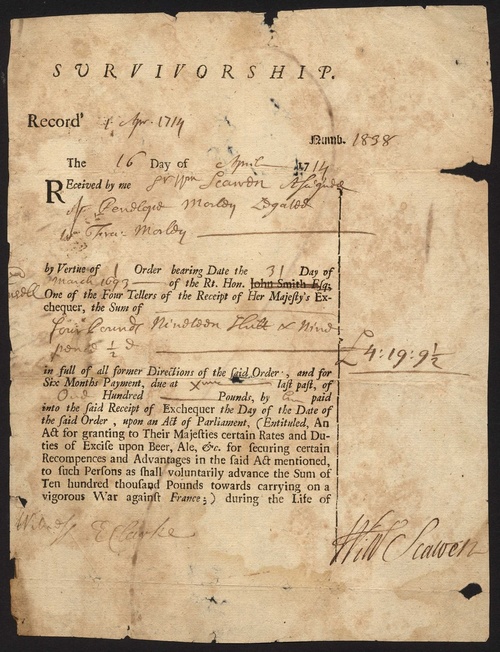 SURVIVORSHIP.
Record' 1 Apr. 1714
Numb. 1838
The 16 Day of April 1714
Received by me Sr Wm Scawen Assignee
of Penelope Morley Legatee
Morley
by Vertue of 1 Order bearing Date the 31 Day of
March 1693 of the Rt. Hon. John Smith Esq;
One of the Four Tellers of the Receipt of Her Majesty's Ex-
chequer, the Sum of
four Pounds Nineteen Shill & Nine
pence ½ d
£4:19:9½
in full of all former Directions of the said Order, and for
Six Months Payment, due at last past, of
One Hundred Pounds, by him paid
into the said Receipt of Exchequer the Day of the Date of
the said Order, upon an Act of Parliament, (Entituled, An
Act for granting to Their Majesties certain Rates and Du-
ties of Excise upon Beer, Ale, &c. for securing certain
Recompences and Advantages in the said Act mentioned,
to such Persons as shall voluntarily advance the Sum of
Ten hundred thousand Pounds towards carrying on a
vigorous War against France;) during the Life of
Witness E Clarke
Will Scawen